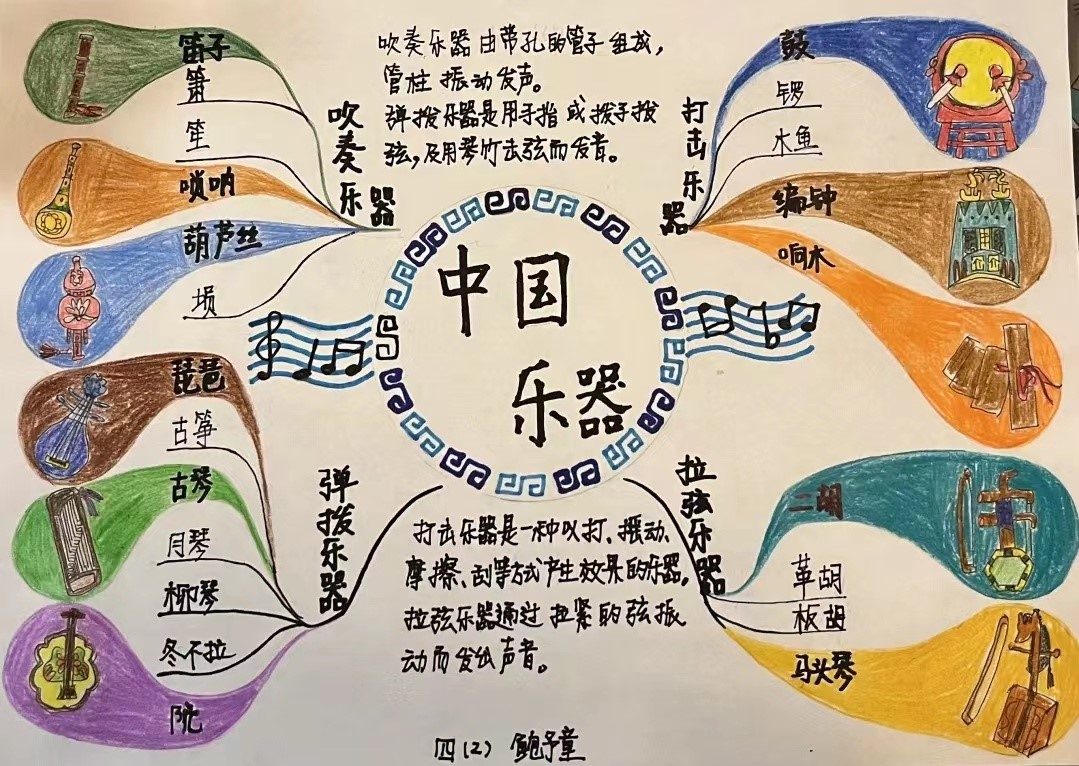 吹奏乐器由带孔的管子组成，
管柱振动发声。
弹拨乐器是用手指或拨子拨
弦，及用琴竹击弦而发音。
中国
乐器
吹奏乐器
笛子
箫
笙
唢呐
葫芦丝
埙
弹拨乐器
琵琶
古筝
古琴
月琴
柳琴
冬不拉
阮
打击乐器
鼓
锣
木鱼
编钟
响木
拉弦乐器
二胡
革胡
板胡
马头琴
打击乐器是一种以打、摇动、
摩擦、刮等方式产生效果的乐器。
拉弦乐器通过拉紧的弦振
动而发出声音。
四(2) 鲍予童